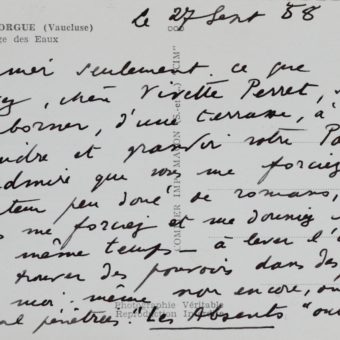 Le 27 Sept 58
ORGUE (Vaucluse)
ge des Eaux
mer seulement ce que
chère Vivette Perret,
borner, d'une terrasse, à
et grandir votre Pa
admire que vous me forciez
teur peu doué de romans,
me forciez et me donniez
même temps – à lever l'
trouver des pouvoirs dans des
moi-même non encore, ou
al pénétrées. "Les Absents" ou
COMBIER IMP. MACON (S.-et-L.) "CIM"
Photographie Véritable
Reproduction Interdite